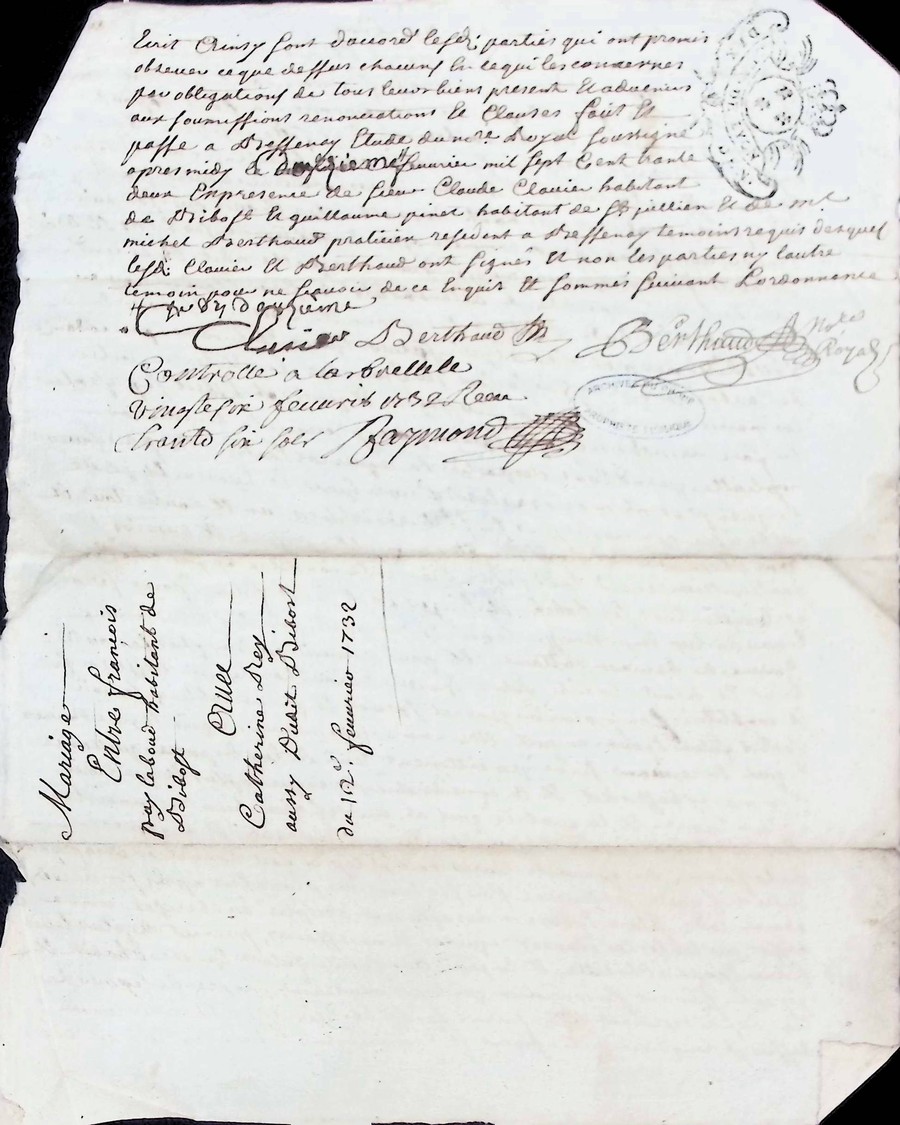 Ecrit Cainsy sont daccord lesd: parties qui ont promis
observer ce que dessus chacuns en ce qui les concernes
par obligations de tous leurs biens present Et advenirs
aux soumissions renonciations Et Clauses fait Et
passé a Bessenay Etude du nore. Royal soussigné
apres midy le douzieme fevrier mil sept Cent trante
deux En presence de sieur Claude Clavier habitant
de Bibost Et guillaume pinet habitant de St jullien Et de Me
michel Berthaud praticien resident a Bessenay temoins requis desquel
lesd: Clavier Et Berthaud ont signés Et non les parties ny lautre
temoin pour ne sçavoir de ce Enquis Et sommés suivant Lordonnance
douzieme
Clavier Berthaud
Berthaud Nore Royal
Controllé a larbrellele
vingtesix feuvrié 1732 Receu
trante six sols Raymond
Mariage
Entre françois
pay laboud habitant de
Bibost
Avec
Catherine Rey
aussy Dudit Bibost
du 12e. feuvrier 1732